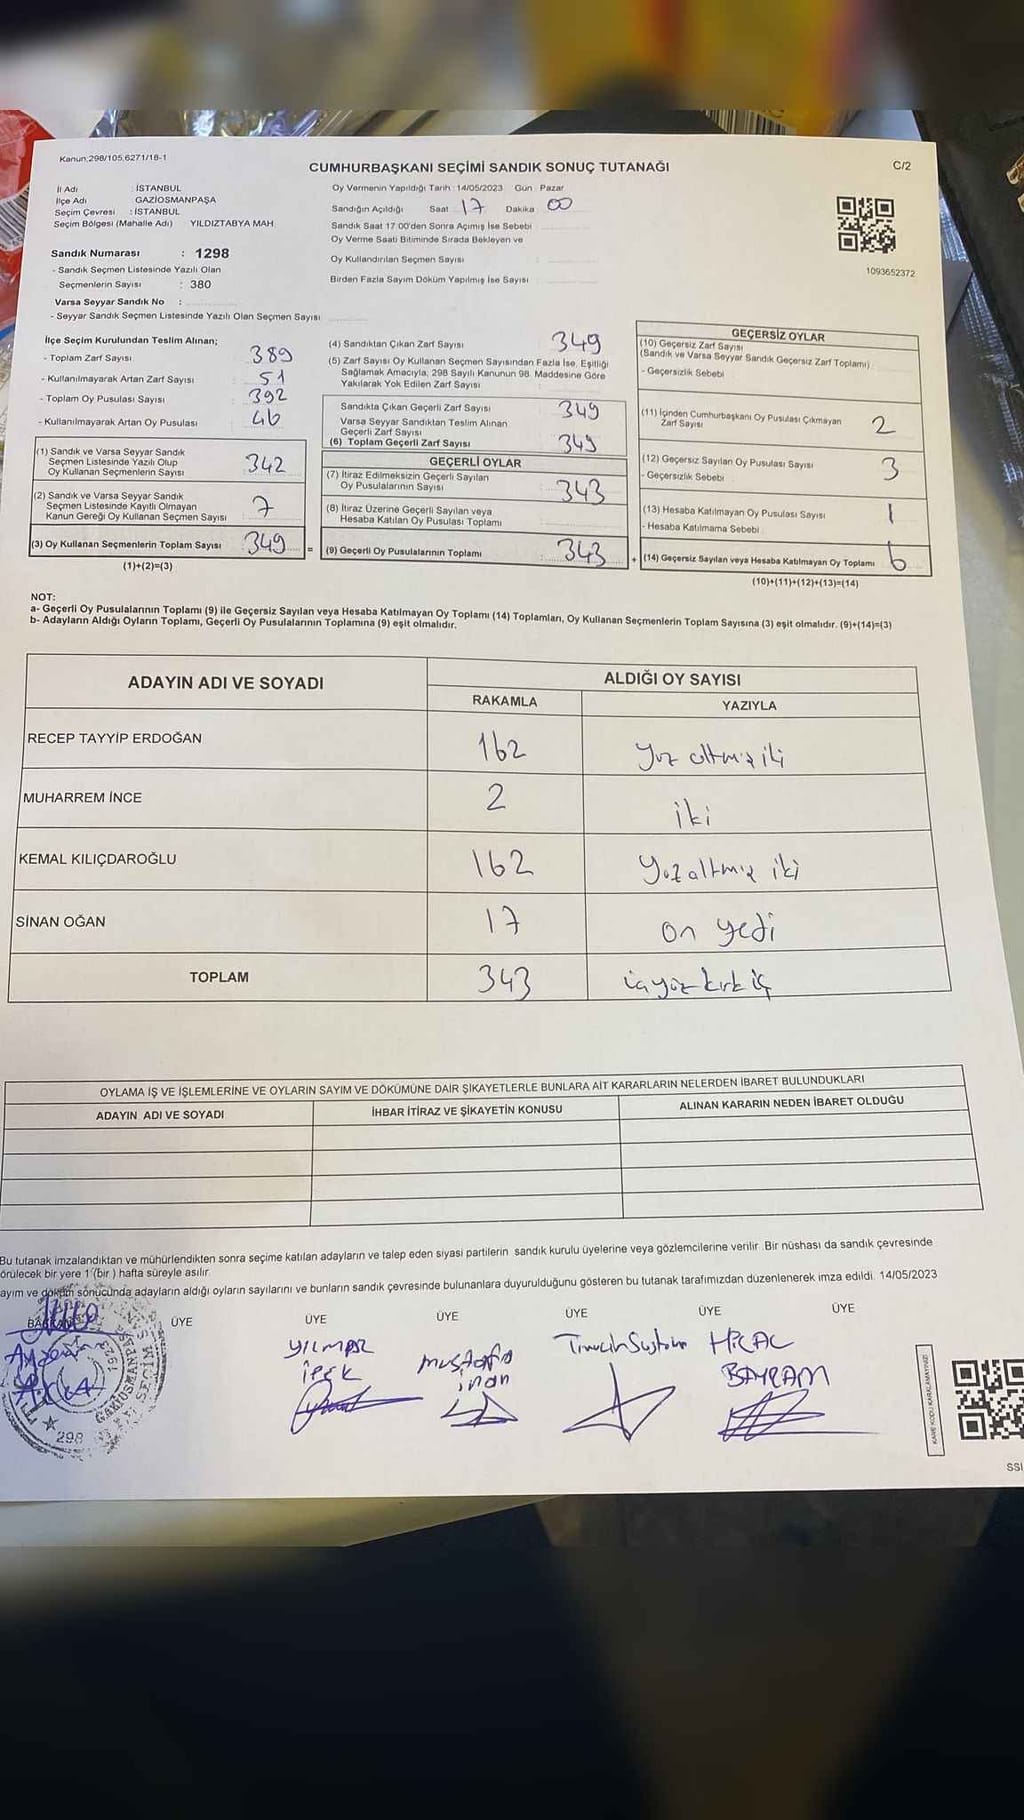 Kanun;298/105,6271/18-1
CUMHURBAŞKANI SEÇİMİ SANDIK SONUÇ TUTANAĞI
C/2
İl Adı : İSTANBUL
İlçe Adı GAZİOSMANPAŞA
Seçim Çevresi : İSTANBUL
Seçim Bölgesi (Mahalle Adı) YILDIZTABYA MAH.
Oy Vermenin Yapıldığı Tarih :14/05/2023 Gün : Pazar
Sandığın Açıldığı Saat : 17 Dakika : 00
Sandık Saat 17:00'den Sonra Açılmış İse Sebebi
Oy Verme Saati Bitiminde Sırada Bekleyen ve
Oy Kullandırılan Seçmen Sayısı
Birden Fazla Sayım Döküm Yapılmış İse Sayısı
1093652372
Sandık Numarası : 1298
- Sandık Seçmen Listesinde Yazılı Olan
Seçmenlerin Sayısı : 380
Varsa Seyyar Sandık No :
- Seyyar Sandık Seçmen Listesinde Yazılı Olan Seçmen Sayısı
İlçe Seçim Kurulundan Teslim Alınan;
- Toplam Zarf Sayısı 389
- Kullanılmayarak Artan Zarf Sayısı 51
- Toplam Oy Pusulası Sayısı 392
- Kullanılmayarak Artan Oy Pusulası 46
(1) Sandık ve Varsa Seyyar Sandık
Seçmen Listesinde Yazılı Olup
Oy Kullanan Seçmenlerin Sayısı 342
(2) Sandık ve Varsa Seyyar Sandık
Seçmen Listesinde Kayıtlı Olmayan
Kanun Gereği Oy Kullanan Seçmen Sayısı 7
(3) Oy Kullanan Seçmenlerin Toplam Sayısı 349 =
(1)+(2)=(3)
(4) Sandıktan Çıkan Zarf Sayısı 349
(5) Zarf Sayısı Oy Kullanan Seçmen Sayısından Fazla İse, Eşitliği
Sağlamak Amacıyla; 298 Sayılı Kanunun 98. Maddesine Göre
Yakılarak Yok Edilen Zarf Sayısı
Sandıkta Çıkan Geçerli Zarf Sayısı 349
Varsa Seyyar Sandıktan Teslim Alınan
Geçerli Zarf Sayısı
(6) Toplam Geçerli Zarf Sayısı 349
GEÇERLİ OYLAR
(7) İtiraz Edilmeksizin Geçerli Sayılan
Oy Pusulalarının Sayısı 343
(8) İtiraz Üzerine Geçerli Sayılan veya
Hesaba Katılan Oy Pusulası Toplamı
(9) Geçerli Oy Pusulalarının Toplamı : 343 +
GEÇERSİZ OYLAR
(10) Geçersiz Zarf Sayısı
(Sandık ve Varsa Seyyar Sandık Geçersiz Zarf Toplamı)
- Geçersizlik Sebebi
(11) İçinden Cumhurbaşkanı Oy Pusulası Çıkmayan
Zarf Sayısı 2
(12) Geçersiz Sayılan Oy Pusulası Sayısı 3
- Geçersizlik Sebebi
(13) Hesaba Katılmayan Oy Pusulası Sayısı 1
- Hesaba Katılmama Sebebi
(14) Geçersiz Sayılan veya Hesaba Katılmayan Oy Toplamı 6
(10)+(11)+(12)+(13)=(14)
NOT:
a- Geçerli Oy Pusulalarının Toplamı (9) ile Geçersiz Sayılan veya Hesaba Katılmayan Oy Toplamı (14) Toplamları, Oy Kullanan Seçmenlerin Toplam Sayısına (3) eşit olmalıdır. (9)+(14)=(3)
b- Adayların Aldığı Oyların Toplamı, Geçerli Oy Pusulalarının Toplamına (9) eşit olmalıdır.
ADAYIN ADI VE SOYADI
ALDIĞI OY SAYISI
RAKAMLA YAZIYLA
RECEP TAYYİP ERDOĞAN 162 yüz altmış iki
MUHARREM İNCE 2 iki
KEMAL KILIÇDAROĞLU 162 yüz altmış iki
SİNAN OĞAN 17 on yedi
TOPLAM 343 üçyüz kırk üç
OYLAMA İŞ VE İŞLEMLERİNE VE OYLARIN SAYIM VE DÖKÜMÜNE DAİR ŞİKAYETLERLE BUNLARA AİT KARARLARIN NELERDEN İBARET BULUNDUKLARI
ADAYIN ADI VE SOYADI İHBAR İTİRAZ VE ŞİKAYETİN KONUSU ALINAN KARARIN NEDEN İBARET OLDUĞU
Bu tutanak imzalandıktan ve mühürlendikten sonra seçime katılan adayların ve talep eden siyasi partilerin sandık kurulu üyelerine veya gözlemcilerine verilir. Bir nüshası da sandık çevresinde
örülecek bir yere 1 (bir ) hafta süreyle asılır.
ayım ve döküm sonucunda adayların aldığı oyların sayılarını ve bunların sandık çevresinde bulunanlara duyurulduğunu gösteren bu tutanak tarafımızdan düzenlenerek imza edildi. 14/05/2023
BAŞKAN ÜYE ÜYE ÜYE ÜYE ÜYE ÜYE
YILMAZ
İPEK
mustafa
inan
HİLAL
BAYRAM
298
KARE KODU KARALAMAYINIZ
SSI